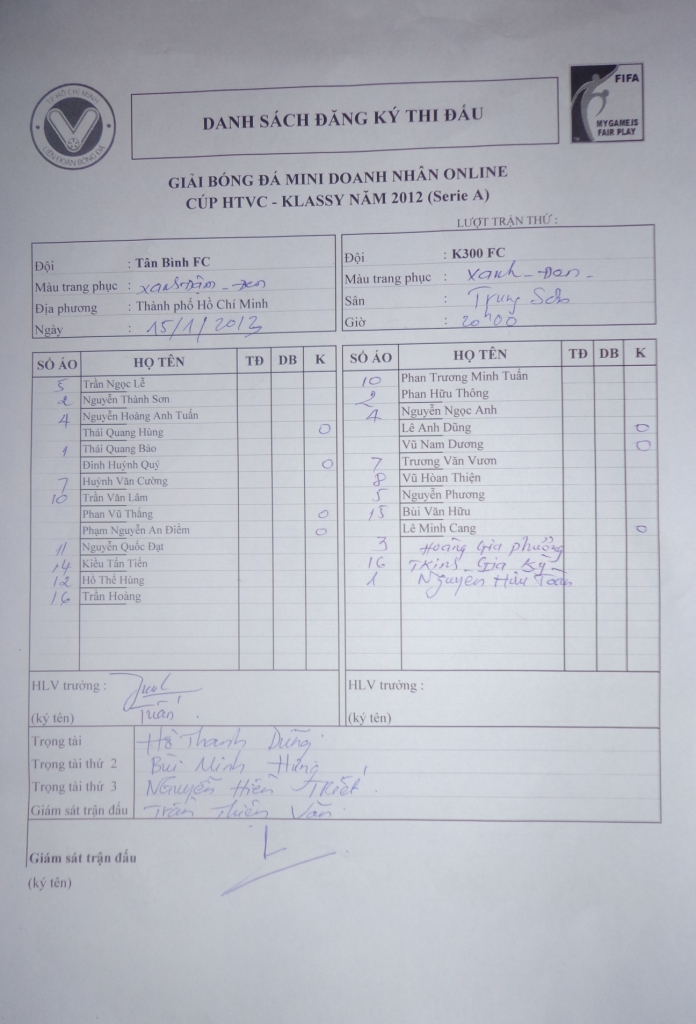 TP HỒ CHÍ MINH
LIÊN ĐOÀN BÓNG ĐÁ
DANH SÁCH ĐĂNG KÝ THI ĐẤU
FIFA
MY GAME IS
FAIR PLAY
GIẢI BÓNG ĐÁ MINI DOANH NHÂN ONLINE
CÚP HTVC - KLASSY NĂM 2012 (Serie A)
LƯỢT TRẬN THỨ :
Đội : Tân Bình FC
Màu trang phục : xanh đậm - đen
Địa phương : Thành phố Hồ Chí Minh
Ngày : 15/1/2013
Đội : K300 FC
Màu trang phục : xanh - đen -
Sân : Trung Sơn
Giờ : 20h00
SỐ ÁO HỌ TÊN TĐ DB K
5 Trần Ngọc Lễ
2 Nguyễn Thành Sơn
4 Nguyễn Hoàng Anh Tuấn
Thái Quang Hùng O
1 Thái Quang Bảo
Đinh Huỳnh Quý O
7 Huỳnh Văn Cường
10 Trần Văn Lâm
Phan Vũ Thắng O
Phạm Nguyễn An Điềm O
11 Nguyễn Quốc Đạt
14 Kiều Tấn Tiền
12 Hồ Thế Hùng
16 Trần Hoàng
SỐ ÁO HỌ TÊN TĐ DB K
10 Phan Trương Minh Tuấn
2 Phan Hữu Thông
4 Nguyễn Ngọc Anh
Lê Anh Dũng O
Vũ Nam Dương O
7 Trương Văn Vươn
8 Vũ Hòan Thiện
5 Nguyễn Phương
15 Bùi Văn Hữu
Lê Minh Cang O
3 Hoàng Gia Phường
16 Gia Kỳ
1 Nguyễn Hữu Toàn
HLV trưởng :
(ký tên) Tuấn
HLV trưởng :
(ký tên)
Trọng tài Hồ Thanh Dũng
Trọng tài thứ 2 Bùi Minh Hùng
Trọng tài thứ 3 Nguyễn Hiền Triết
Giám sát trận đấu Trần Thiên Văn
Giám sát trận đấu
(ký tên)